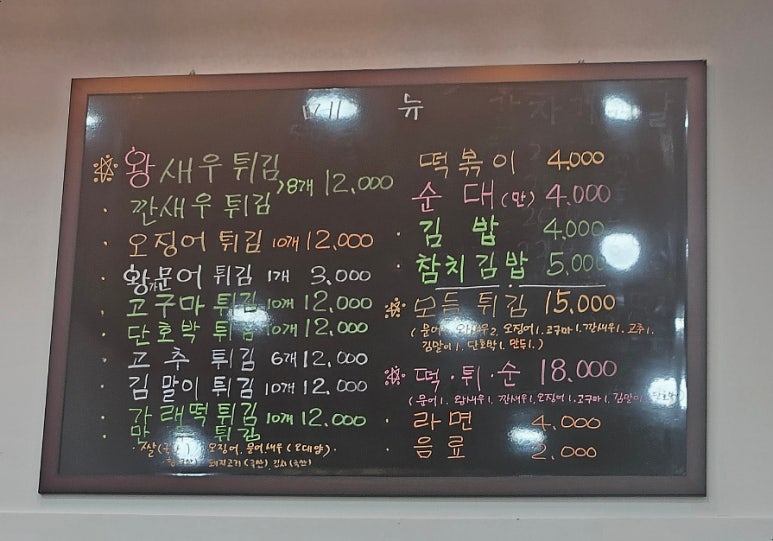 메 뉴
왕새우 튀김
깐새우 튀김 >8개 12,000
오징어 튀김 10개 12,000
왕문어 튀김 1개 3,000
고구마 튀김 10개 12,000
단호박 튀김 10개 12,000
고추 튀김 6개 12,000
김말이 튀김 10개 12,000
가래떡 튀김 10개 12,000
튀김
오징어, 문어, 새우
돼지고기(국산), 김치(국산)
떡볶이 4,000
순대(만) 4,000
김밥 4,000
참치김밥 5,000
모듬 튀김 15,000
(문어1, 왕새우2, 오징어1, 고구마1, 깐새우1, 고추1,
김말이1, 단호박1, 만두1.)
떡·튀·순 18,000
(문어1, 왕새우1, 깐새우1, 오징어1, 고구마1, 김말이
라면 4,000
음료 2,000